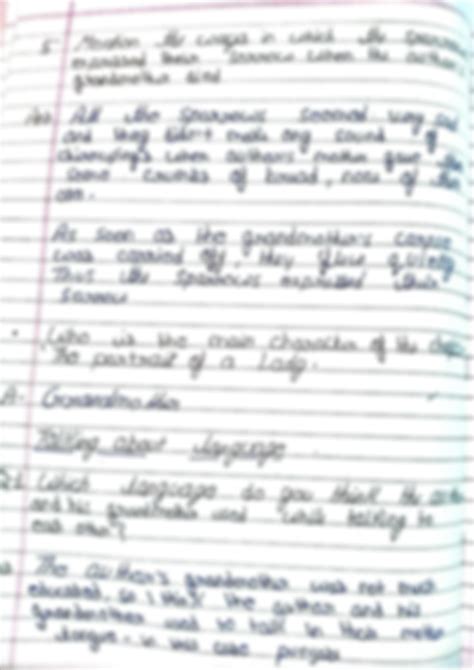 5 Mention the ways in which the sparrows
expressed their sorrow when the author's
grandmother died
Ans All the sparrows seemed very sad
and they didn't made any sound of
chirruping when author's mother gave the
some crumbs of bread, none of them
eat.
As soon as the grandmother's corpse
was carried off, they flew quietly
Thus the sparrows expressed their
sorrow
Who is the main character of the chap
The portrait of a Lady.
A- Grandmother
Talking about language
Q1 Which language do you think the author
and his grandmother used while talking to
each other?
The author's grandmother was not much
educated, so I think the author and his
grandmother used to talk in their mother
tongue - in this case punjabi